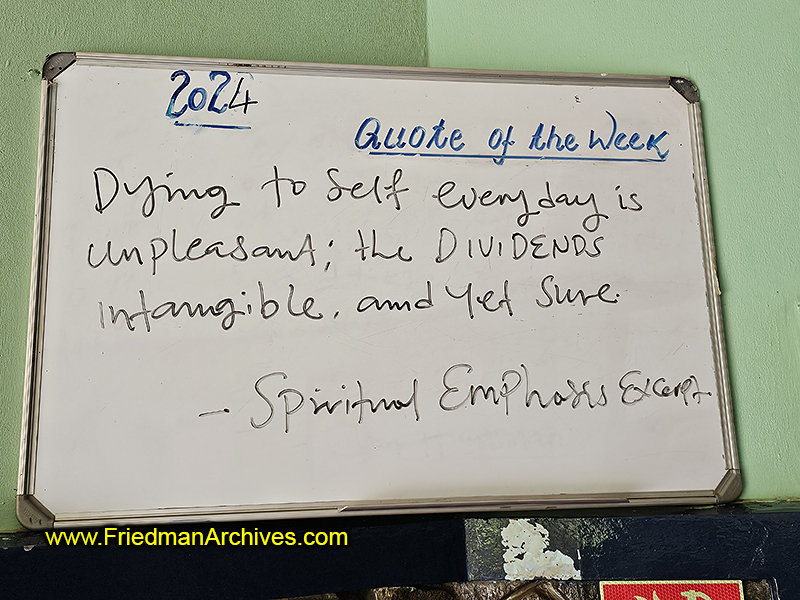 2024
Quote of the Week
Dying to Self everyday is
unpleasant; the DIVIDENDS
intangible, and yet Sure.
- Spiritual Emphasis Excerpt.
www.FriedmanArchives.com